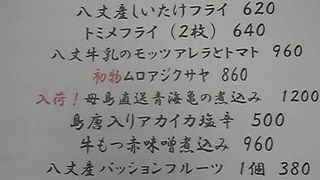 八丈産しいたけフライ 620
トミメフライ（2枚） 640
八丈牛乳のモッツアレラとトマト 960
初物ムロアジクサヤ 860
入荷！母島直送青海亀の煮込み 1200
島唐入りアカイカ塩辛 500
牛もつ赤味噌煮込み 960
八丈産パッションフルーツ 1個 380